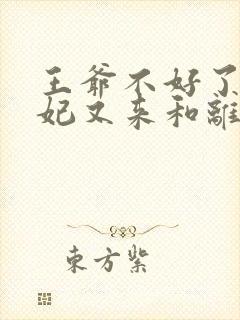 王爺不好了
妃又来和離
東方紫